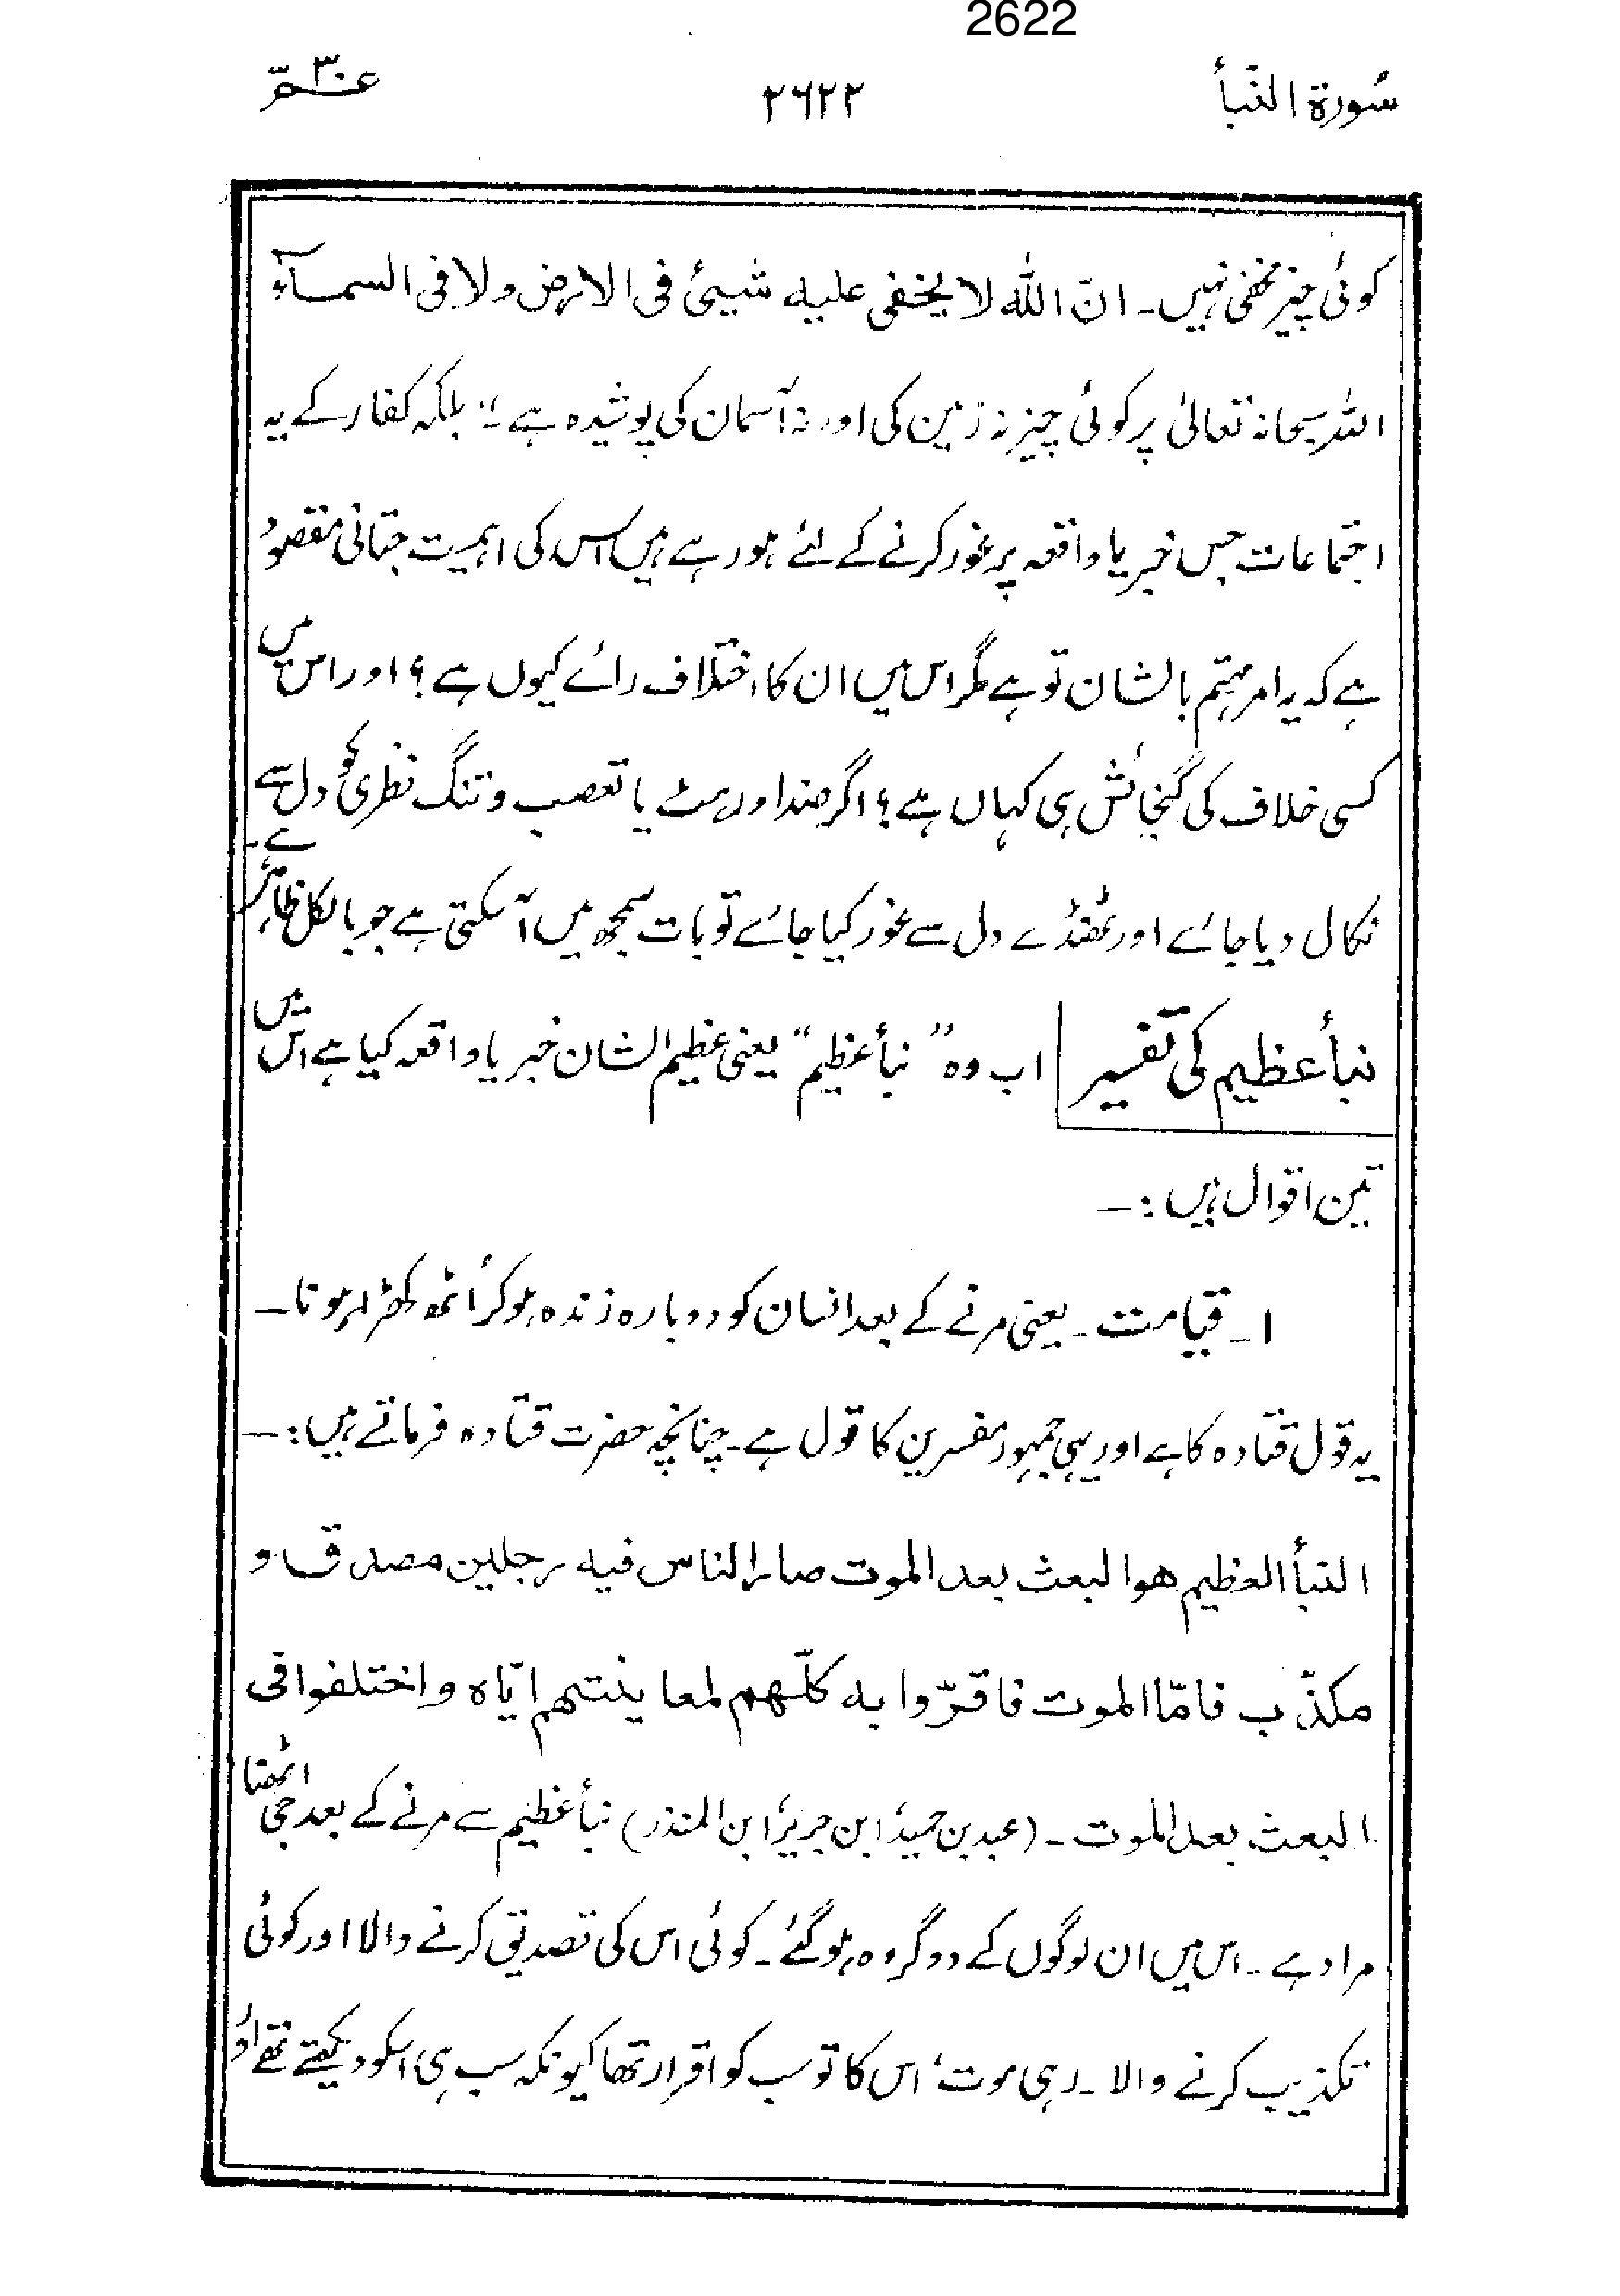 2622
سُورة النّبأ ۲۶۲۲ عمّ ۳۰
کوئی چیز مخفی نہیں۔ انّ اللّٰہ لا یخفی علیہ شیئ فی الارض ولا فی السمآء
اللہ سبحانہ تعالیٰ پر کوئی چیز نہ زمین کی اور نہ آسمان کی پوشیدہ ہے۔" بلکہ کفار کے یہ
اجتماعات جس خبر یا واقعہ پر غور کرنے کے لئے ہو رہے ہیں اس کی اہمیت جتانی مقصود
ہے کہ یہ امر مہتم بالشان تو ہے مگر اس میں ان کا اختلاف رائے کیوں ہے؟ اور اس میں
کسی خلاف کی گنجائش ہی کہاں ہے؟ اگر ضد اور ہٹ یا تعصب و تنگ نظری کو دل سے
نکال دیا جائے اور ٹھنڈے دل سے غور کیا جائے تو بات سمجھ میں آسکتی ہے جو بالکل ظاہر ہے۔
نبأ عظیم کی تفسیر اب وہ "نبأ عظیم" یعنی عظیم الشان خبر یا واقعہ کیا ہے اس میں
تین اقوال ہیں :۔
۱۔ قیامت۔ یعنی مرنے کے بعد انسان کو دوبارہ زندہ ہو کر اُٹھ کھڑا ہونا۔
یہ قول قتادہ کا ہے اور یہی جمہور مفسرین کا قول ہے۔ چنانچہ حضرت قتادہ فرماتے ہیں :۔
النبأ العظیم ھو البعث بعد الموت صار الناس فیہ رجلین مصدق و
مکذّب فامّا الموت فاقرّوا بہ کلّھم لمعاینتھم ایّاہ واختلفوا فی
البعث بعد الموت۔ (عبد بن حمید، ابن جریر، ابن المنذر) نبأ عظیم سے مرنے کے بعد جی اٹھنا
مراد ہے۔ اس میں ان لوگوں کے دو گروہ ہو گئے۔ کوئی اس کی تصدیق کرنے والا اور کوئی
تکذیب کرنے والا۔ رہی موت، اس کا تو سب کو اقرار تھا کیونکہ سب ہی اسکو دیکھتے تھے اور